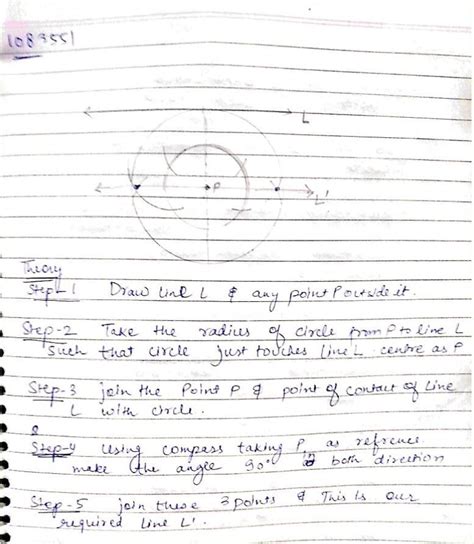 1083551
L
P
L'
Theory
Step-1 Draw line L & any point P outside it.
Step-2 Take the radius of circle from P to line L
such that circle just touches line L centre as P
Step-3 join the Point P & point of contact of line
L with circle.
Step-4 using compass taking P as refrence
make the angle 90° in both direction
Step-5 join these 3 points & This is our
required line L'.